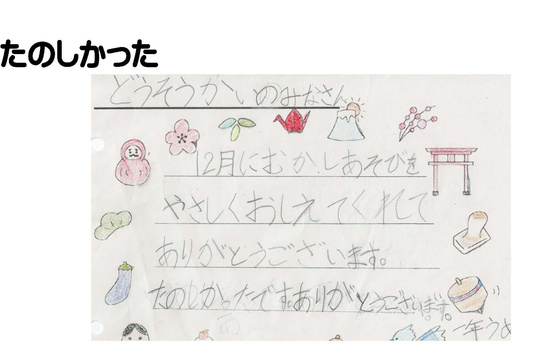 たのしかった
どうそうかいのみなさん
12月にむかしあそびを
やさしくおしえてくれて
ありがとうございます。
たのしかったです。ありがとうございます。
一年